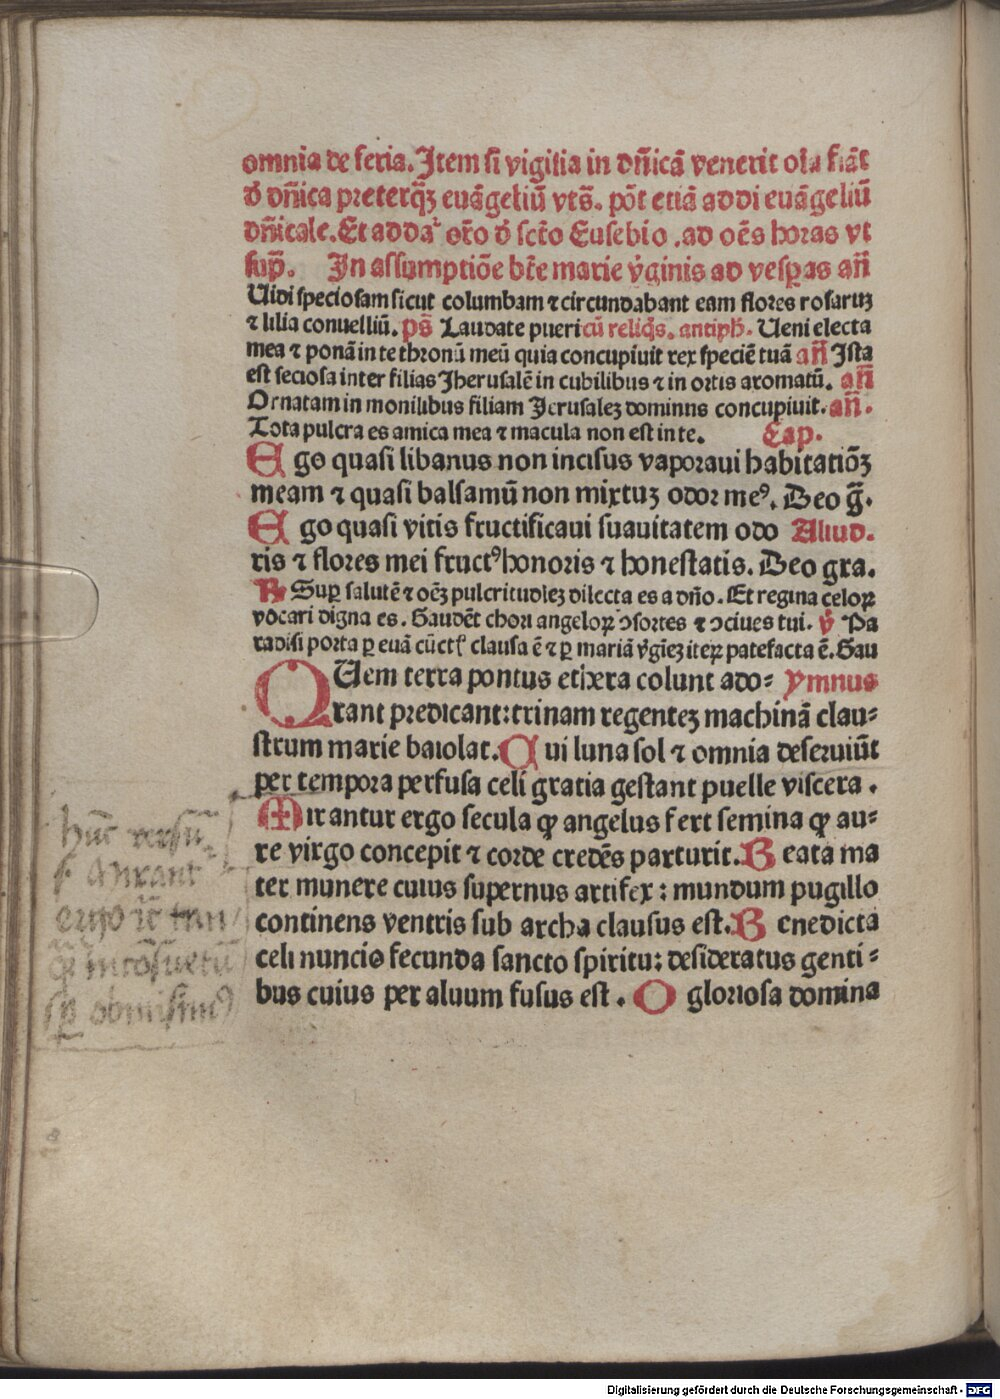 omnia de feria. Item si vigilia in dn̄icā venerit oīa fiāt
d̓ dn̄ica preterqꝫ̄ euāgeliū vts̄. pōt etiā addi euāgeliū
dn̄icale. Et addaᷓ or̄o d̓ sc̄to Eusebio .ad oēs horas vt
sup̄. In assumptiōe bt̄e marie v̓ginis ad vesꝑas an̄
Uidi speciosam sicut columbam ⁊ circundabant eam flores rosaruꝫ
⁊ lilia conuelliū. ps̄ Laudate pueri cū reliq̄s. antiph̄. Ueni electa
mea ⁊ ponā in te thronū meū quia concupiuit rex speciē tuā an̄ Ista
est seciosa inter filias Jherusalē in cubilibus ⁊ in ortis aromatū. an̄
Ornatam in monilibus filiam Jerusaleꝫ dominus concupiuit. an̄.
Tota pulcra es amica mea ⁊ macula non est in te. Cap.
Ego quasi libanus non incisus vaporaui habitatiōꝫ
meam ⁊ quasi balsamū non mixtuꝫ odor meꝰ. Deo g̅.
Ego quasi vitis fructificaui suauitatem odo Aliud.
ris ⁊ flores mei fructꝰ honoris ⁊ honestatis. Deo gra.
℟ Suꝑ salutē ⁊ oēꝫ pulcritudīeꝫ dilecta es a dn̄o. Et regina celoꝝ
vocari digna es. Gaudēt chori angeloꝝ ↄsortes ⁊ ↄciues tui. v̓ Pa
radisi porta ꝑ euā cūctꝭ clausa ē ⁊ ꝑ mariā v̓gīeꝫ iteꝝ patefacta ē. Gau
QUem terra pontus ethera colunt ado= ymnus
rant predicant: trinam regenteꝫ machinā clau=
strum marie baiolat. Qui luna sol ⁊ omnia deseruiūt
per tempora perfusa celi gratia gestant puelle viscera.
Mirantur ergo secula ꝙ angelus fert semina ꝙ au=
re virgo concepit ⁊ corde credēs parturit. Beata ma
ter munere cuius supernus artifex: mundum pugillo
continens ventris sub archa clausus est. Benedicta
celi nuncio fecunda sancto spiritu: desideratus genti=
bus cuius per aluum fusus est. O gloriosa domina
hūc versū
s. Mirant
ergo
incōsuetū
Digitalisierung gefördert durch die Deutsche Forschungsgemeinschaft - DFG